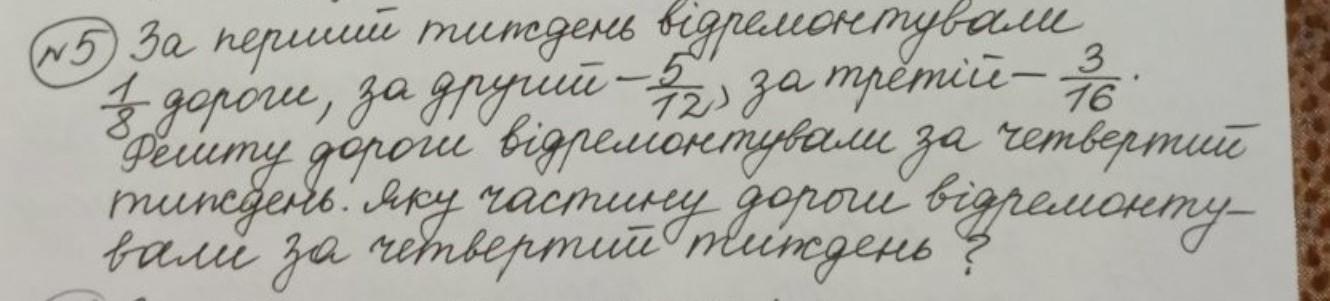 №5 За перший тиждень відремонтували
1/8 дороги, за другий – 5/12, за третій – 3/16.
Решту дороги відремонтували за четвертий
тиждень. Яку частину дороги відремонту-
вали за четвертий тиждень?